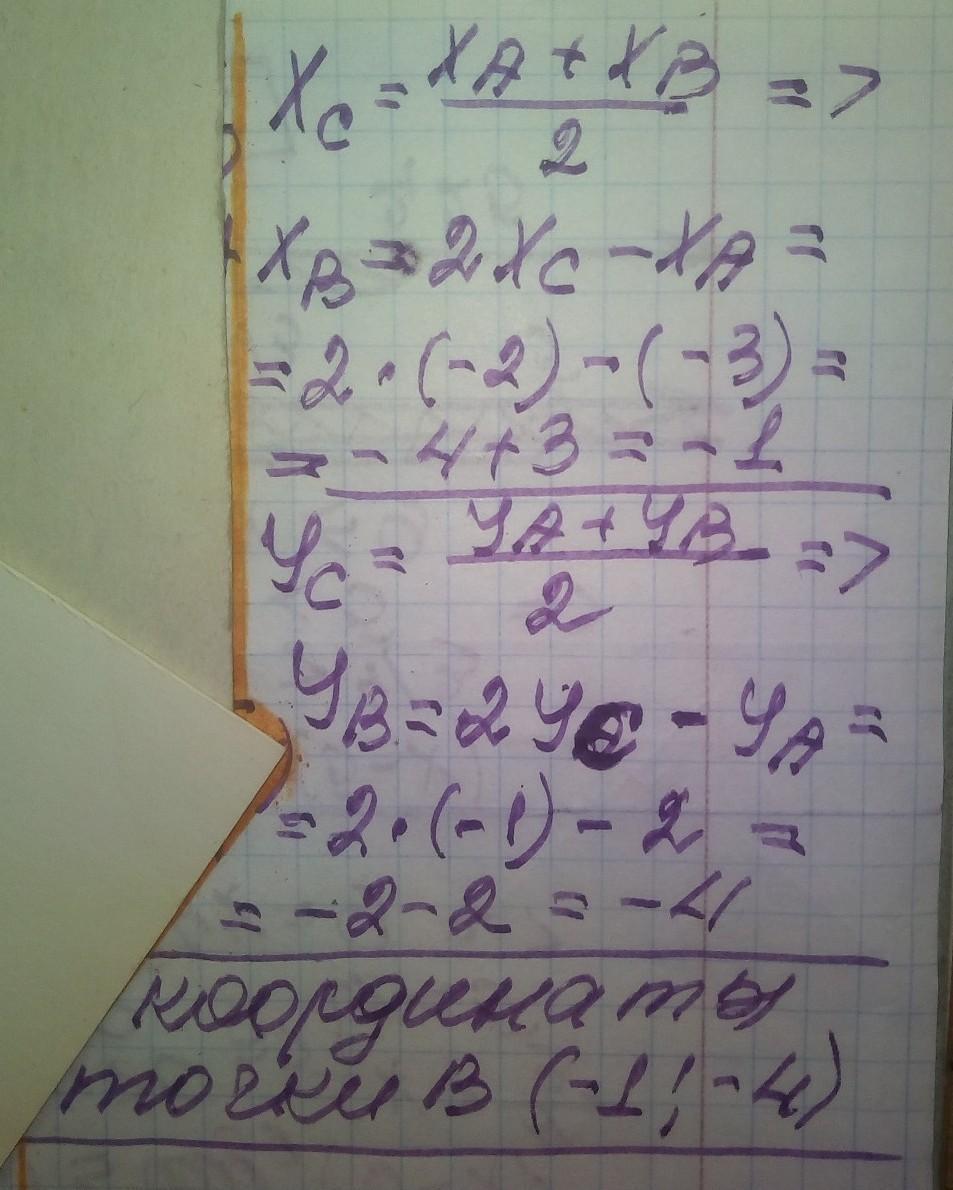 Xc = (XA + XB)/2 =>
XB = 2XC - XA =
= 2 · (-2) - (-3) =
= - 4 + 3 = - 1
Yc = (YA + YB)/2 =>
YB = 2YC - YA =
= 2 · (-1) - 2 =
= -2 - 2 = -4
координаты
точки B (-1; -4)